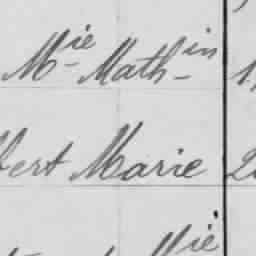 Mie Mathin 1
bert Marie 2
Mie